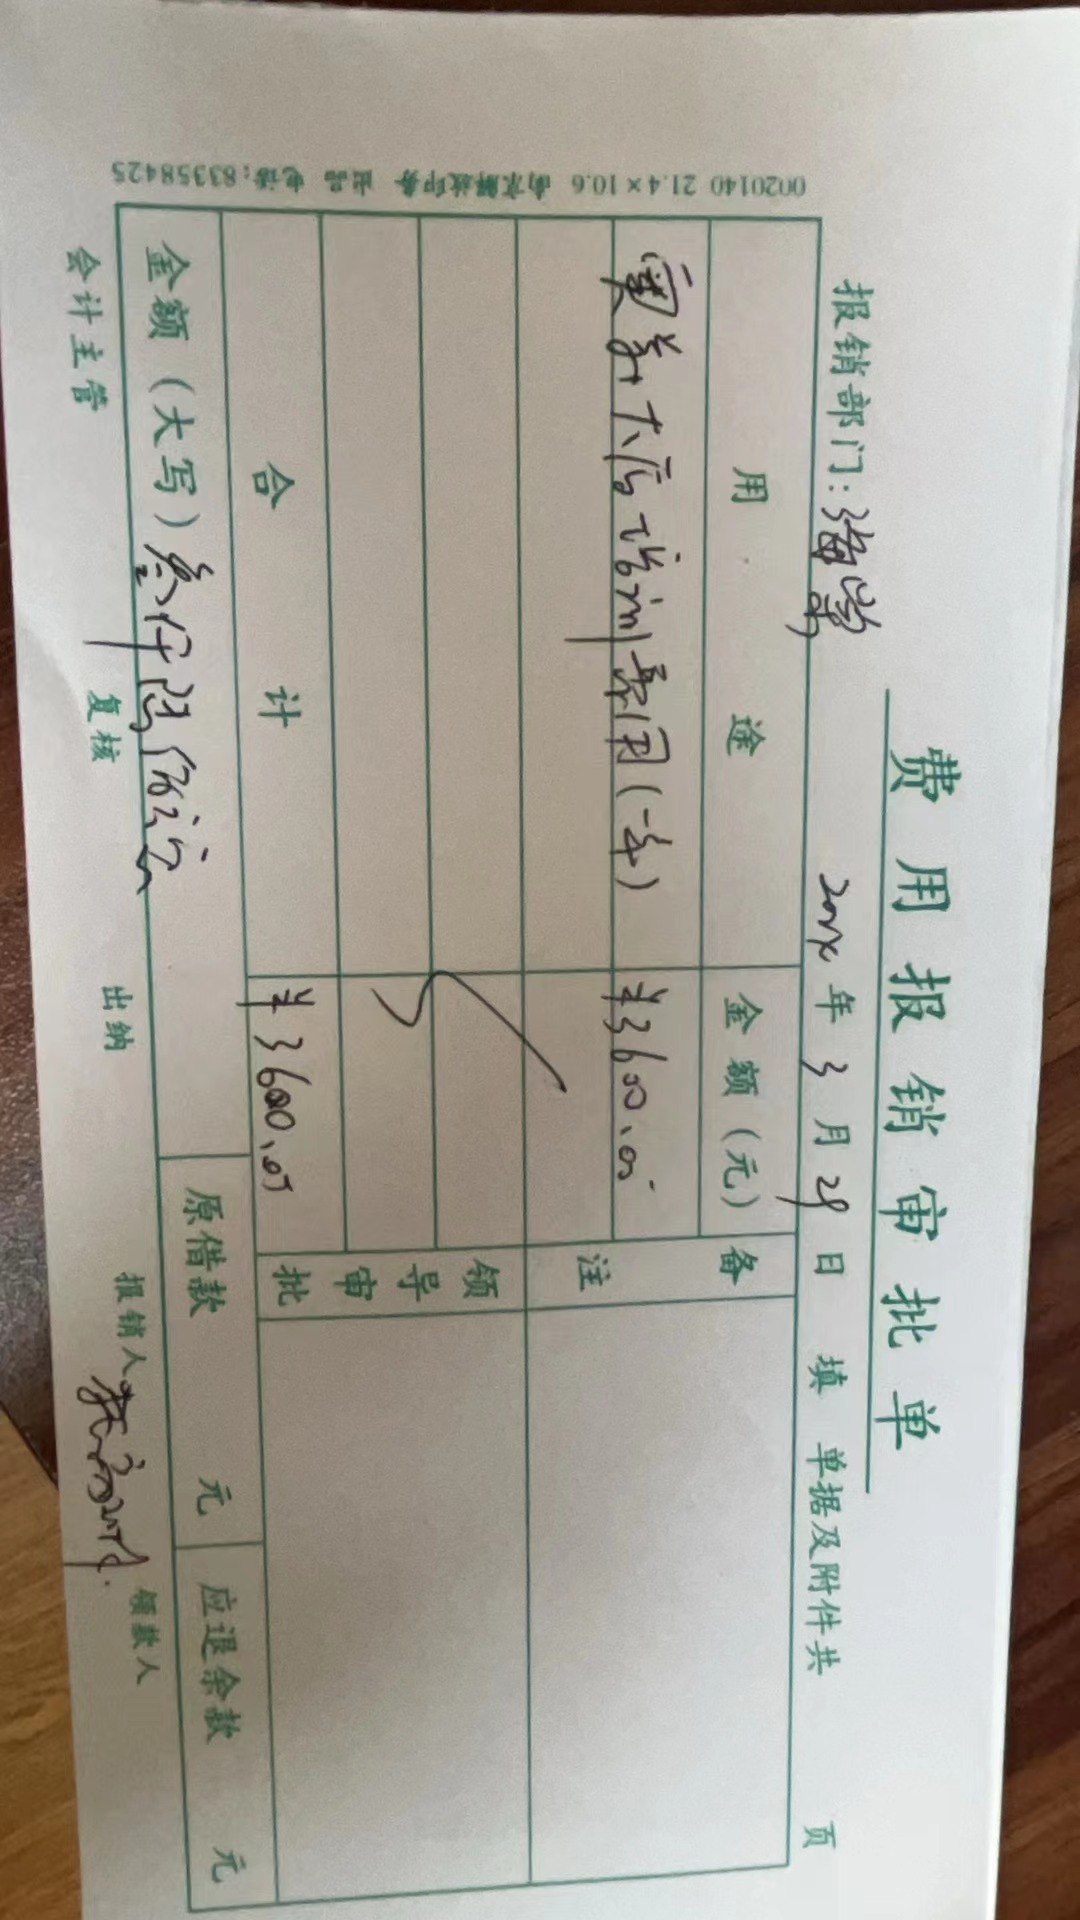 费用报销审批单
报销部门: 年 3 月 29 日 填 单据及附件共 页
用途 金额(元) 备注
大店 费用(一年) ¥3600.00
领导审批
合计 ¥3600.00
金额(大写)叁仟陆佰元 原借款 元 应退余款 元
会计主管 复核 出纳 报销人 领款人
0020140 21.4×10.6 南京解放印务 出品 电话:83358425